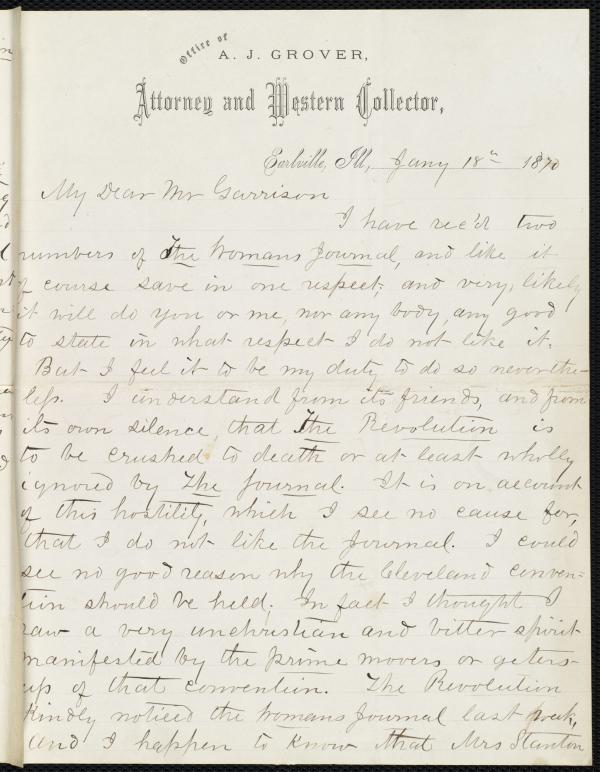 Office of
A. J. GROVER,
Attorney and Western Collector,
Earlville, Ill, Jany 18th 1870
My Dear Mr Garrison
I have rec'd two
numbers of The Womans Journal, and like it
of course save in one respect; and very, likely
it will do you or me, nor any body, any good
to state in what respect I do not like it.
But I feel it to be my duty to do so neverthe-
less. I understand from its friends, and from
its own silence that The Revolution is
to be crushed to death or at least wholly
ignored by The Journal. It is on account
of this hostility, which I see no cause for,
that I do not like the Journal. I could
see no good reason why the Cleveland conven-
tion should be held. In fact I thought I
saw a very unchristian and bitter spirit
manifested by the prime movers or geters-
up of that convention. The Revolution
kindly noticed the Womans Journal last week,
and I happen to know that Mrs Stanton